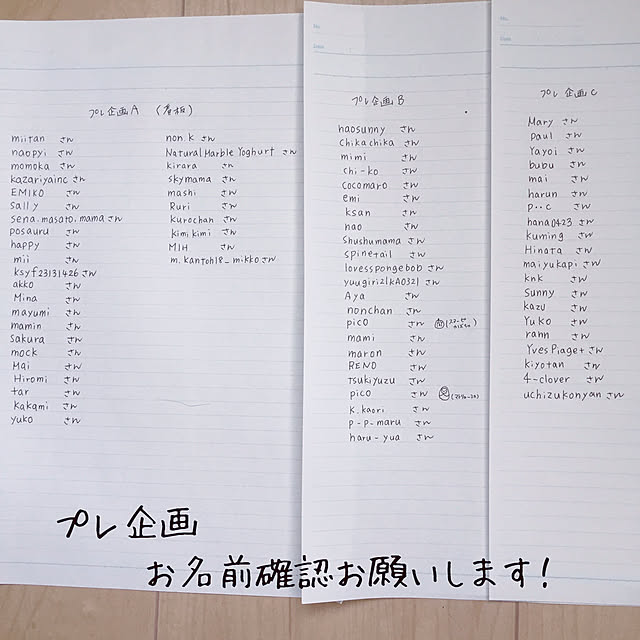 プレ企画 A (看板)
miitan さん
naopyi さん
momoka さん
kazariyainc さん
EMIKO さん
Sally さん
sena.masato.mama さん
posauru さん
happy さん
mii さん
ksyf23131426 さん
akko さん
Mina さん
mayumi さん
mamin さん
Sakura さん
mock さん
Mai さん
Hiromi さん
tar さん
kakami さん
yuko さん
non.k さん
Natural Marble Yoghurt さん
kirara さん
skymama さん
mashi さん
Ruri さん
kurochan さん
kimikimi さん
MIH さん
m.kantoh18_mikko さん
プレ企画 B
naosunny さん
chikachika さん
mimi さん
chi-ko さん
cocomaro さん
emi さん
ksan さん
nao さん
Shushumama さん
spinetail さん
lovesspongebob さん
yuugiri21KA0321 さん
Aya さん
nonchan さん
pico さん
mami さん
maron さん
RENO さん
Tsukiyuzu さん
pico さん
k.kaori さん
p-p-maru さん
haru-yua さん
プレ企画 C
Mary さん
paul さん
Yayoi さん
bubu さん
mai さん
harun さん
p・・c さん
hana0423 さん
kuming さん
Hinata さん
maiyukapi さん
knk さん
Sunny さん
kazu さん
Yuko さん
rann さん
YvesPiaget さん
kiyotan さん
4-clover さん
uchizukonyan さん
プレ企画
お名前確認お願いします!